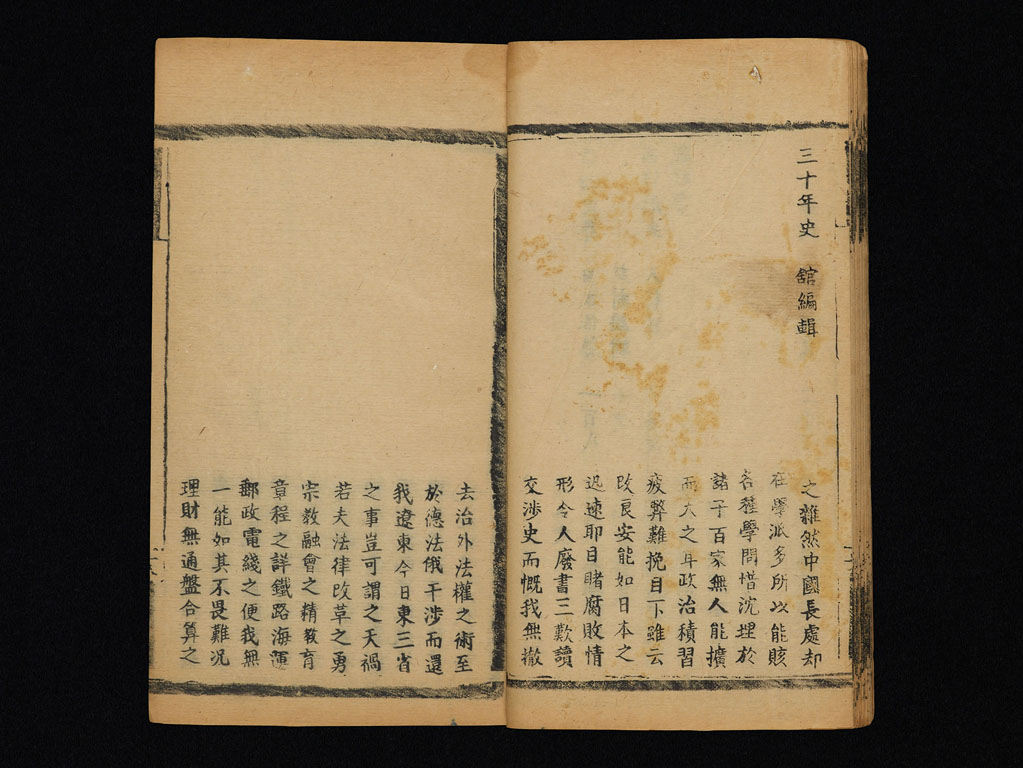 三十年史　舘編輯
之雜然中國長處却
在學派多所以能賅
各種學問惜沈埋於
諸子百家無人能擴
而大之耳政治積習
疲弊難挽目下雖云
改良安能如日本之
迅速耶日睹腐敗情
形令人廢書三歎讀
交涉史而慨我無撤
去治外法權之術至
於德法俄干涉而還
我遼東今日東三省
之事豈可謂之天禍
若夫法律改革之勇
宗教融會之精教育
章程之詳鐵路海運
郵政電綫之便我無
一能如其不畏難況
理財無通盤合算之